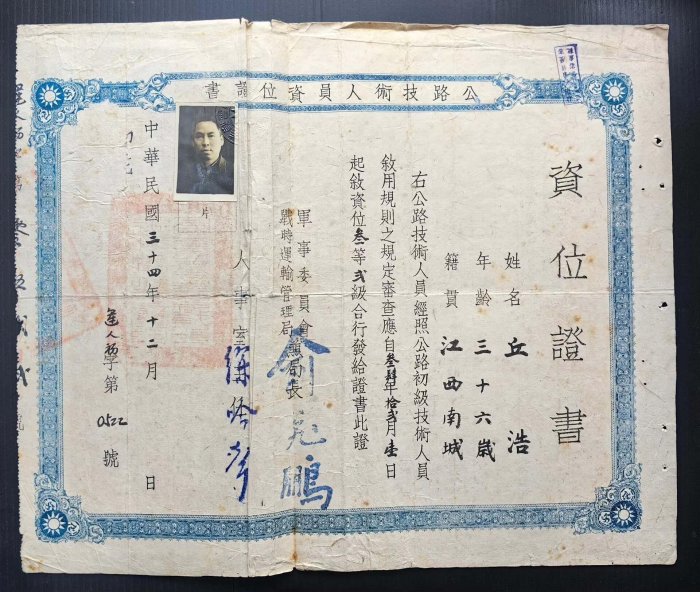 公路技術人員資位證書
資位證書
姓名 丘浩
年齡 三十六歲
籍貫 江西南城
右公路技術人員經照公路初級技術人員
敘用規則之規定審查應自叁肆年拾弍月壹日
起敘資位叁等弍級合行發給證書此證
軍事委員會
戰時運輸管理局
兼局長 俞飛鵬
人事室
片
中華民國三十四年十二月 日
字第0522號